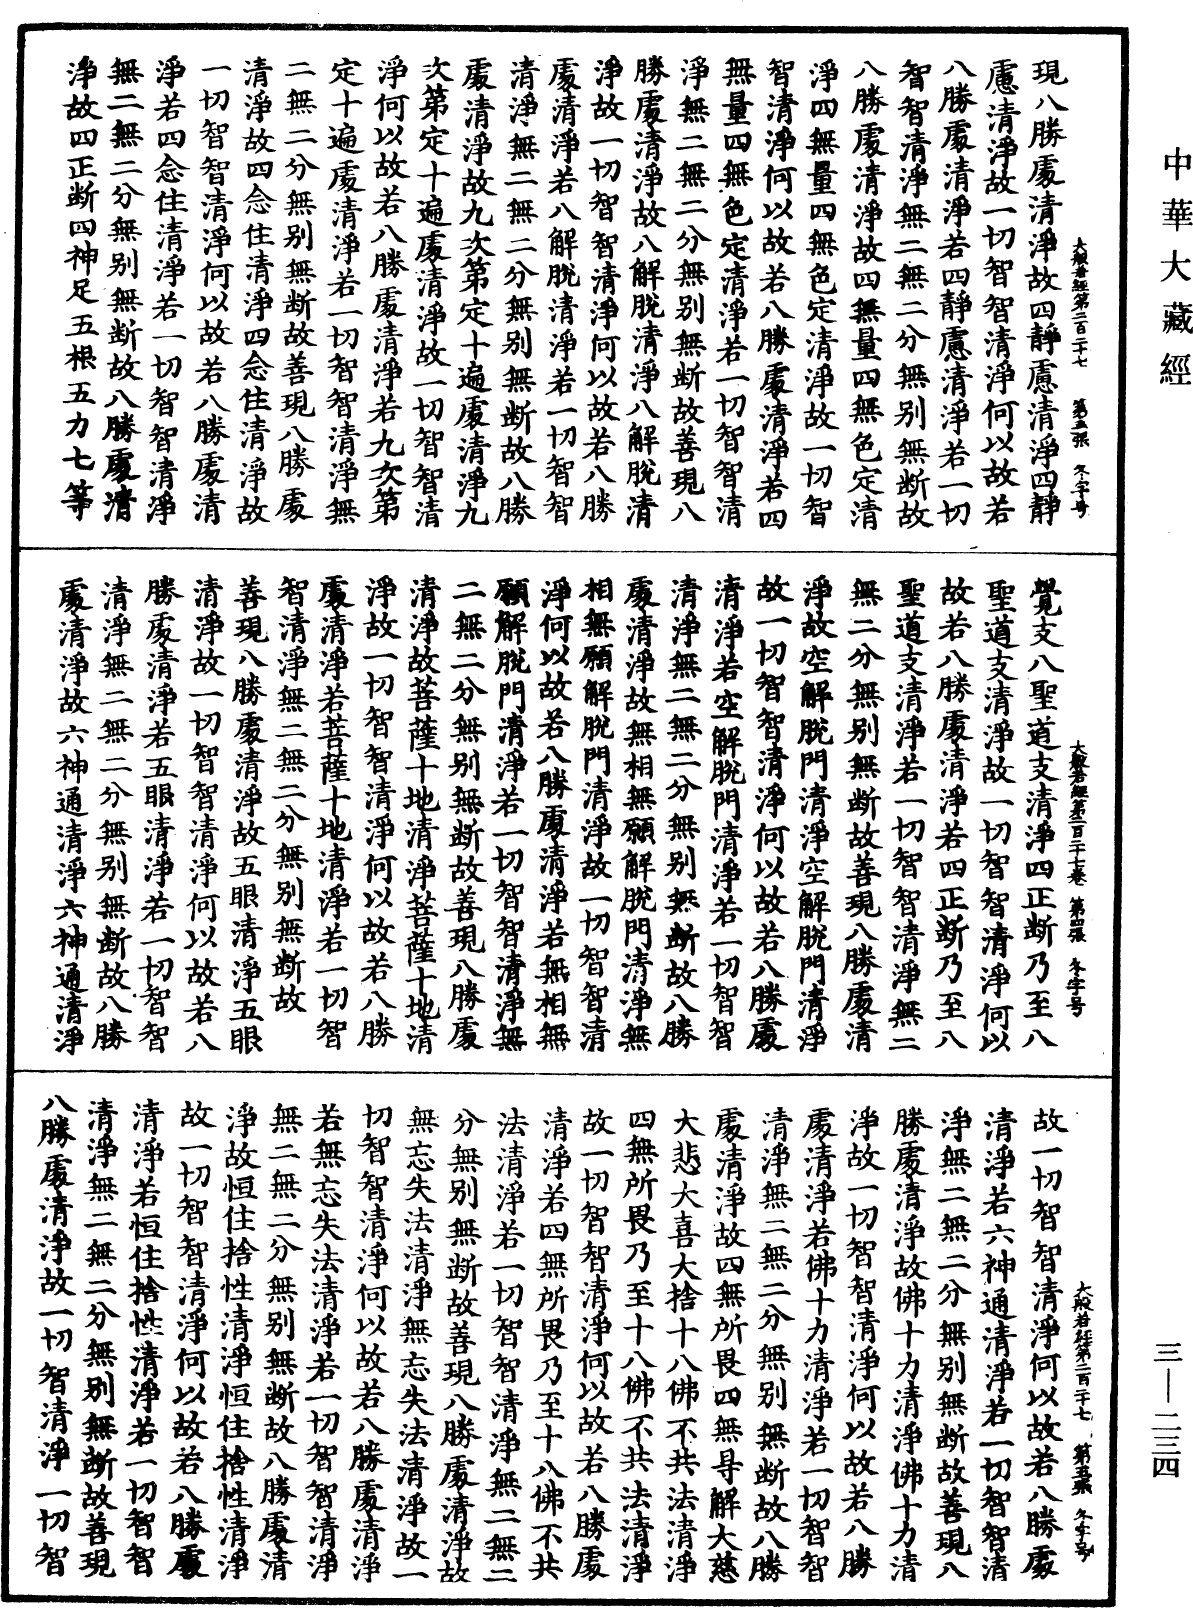 中華大藏經
三—二三四
現八勝處清淨故四靜慮清淨四靜
慮清淨故一切智智清淨何以故若
八勝處清淨若四靜慮清淨若一切
智智清淨無二無二分無別無断故
八勝處清淨故四無量四無色定清
淨四無量四無色定清淨故一切智
智清淨何以故若八勝處清淨若四
無量四無色定清淨若一切智智清
淨無二無二分無別無断故善現八
勝處清淨故八解脫清淨八解脫清
淨故一切智智清淨何以故若八勝
處清淨若八解脫清淨若一切智智
清淨無二無二分無別無断故八勝
處清淨故九次第定十遍處清淨九
次第定十遍處清淨故一切智智清
淨何以故若八勝處清淨若九次第
定十遍處清淨若一切智智清淨無
二無二分無別無断故善現八勝處
清淨故四念住清淨四念住清淨故
一切智智清淨何以故若八勝處清
淨若四念住清淨若一切智智清淨
無二無二分無別無断故八勝處清
淨故四正断四神足五根五力七等
大般若經第二百二十七 第三張 冬字号
覺支八聖道支清淨四正断乃至八
聖道支清淨故一切智智清淨何以
故若八勝處清淨若四正断乃至八
聖道支清淨若一切智智清淨無二
無二分無別無断故善現八勝處清
淨故空解脫門清淨空解脫門清淨
故一切智智清淨何以故若八勝處
清淨若空解脫門清淨若一切智智
清淨無二無二分無別無断故八勝
處清淨故無相無願解脫門清淨無
相無願解脫門清淨故一切智智清
淨何以故若八勝處清淨若無相無
願解脫門清淨若一切智智清淨無
二無二分無別無断故善現八勝處
清淨故菩薩十地清淨菩薩十地清
淨故一切智智清淨何以故若八勝
處清淨若菩薩十地清淨若一切智
智清淨無二無二分無別無断故
善現八勝處清淨故五眼清淨五眼
清淨故一切智智清淨何以故若八
勝處清淨若五眼清淨若一切智智
清淨無二無二分無別無断故八勝
處清淨故六神通清淨六神通清淨
大般若經第二百二十七卷 第四張 冬字号
故一切智智清淨何以故若八勝處
清淨若六神通清淨若一切智智清
淨無二無二分無別無断故善現八
勝處清淨故佛十力清淨佛十力清
淨故一切智智清淨何以故若八勝
處清淨若佛十力清淨若一切智智
清淨無二無二分無別無断故八勝
處清淨故四無所畏四無㝵解大慈
大悲大喜大捨十八佛不共法清淨
四無所畏乃至十八佛不共法清淨
故一切智智清淨何以故若八勝處
清淨若四無所畏乃至十八佛不共
法清淨若一切智智清淨無二無二
分無別無断故善現八勝處清淨故
無忘失法清淨無忘失法清淨故一
切智智清淨何以故若八勝處清淨
若無忘失法清淨若一切智智清淨
無二無二分無別無断故八勝處清
淨故恒住捨性清淨恒住捨性清淨
故一切智智清淨何以故若八勝處
清淨若恒住捨性清淨若一切智智
清淨無二無二分無別無断故善現
八勝處清淨故一切智清淨一切智
大般若經第二百二十七 第五張 冬字号